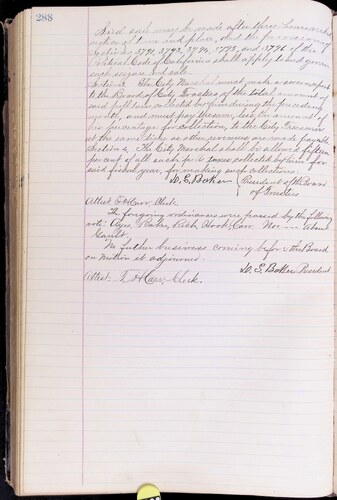 288
Said sale may be made after three hours notice
of time and place, and the provisions of
Sections 3791, 3793, 3794, 3795, and 3796 of the
Political Code of California shall apply to and govern
such seizure and sale.
Section 3. The City Marshal must make a report
to the Board of City Trustees of the total amount of
said poll tax collected by him during the preceding
month, and must pay the same, less the amount of
his percentage for collection, to the City Treasurer
at the same time as other moneys are made payable
Section 4. The City Marshal shall be allowed fifteen
per cent of all such poll taxes collected by him for
said fiscal year, for making such collections.
W. E. Baker President of the Board
of Trustees
Attest F. H. Carr, Clerk.
The forgoing ordinances were passed by the following
vote: Ayes, Baker, Rich, Hook, Carr. Noes — Absent
Gault.
No further business coming before the Board
on motion it adjourned.
W. E. Baker President
Attest: F. H. Carr, Clerk.